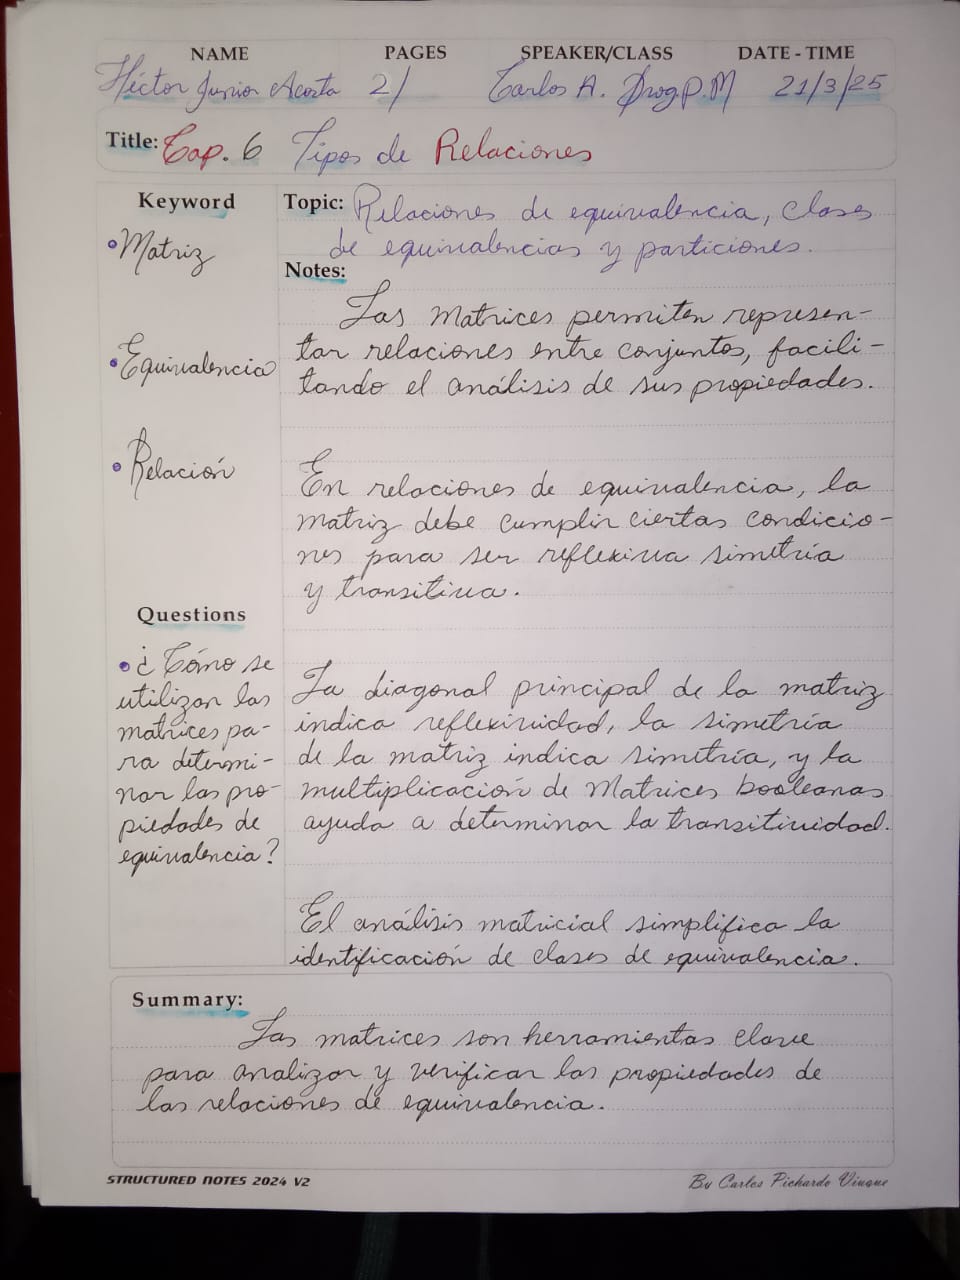 NAME PAGES SPEAKER/CLASS DATE - TIME
Héctor Junior Acosta 2/ Carlos A. Prog P.M 21/3/25
Title: Cap. 6 Tipos de Relaciones
Keyword
• Matriz
• Equivalencia
• Relación
Questions
• ¿Cómo se
utilizan las
matrices pa-
ra determi-
nar las pro-
piedades de
equivalencia?
Topic: Relaciones de equivalencia, clases
de equivalencias y particiones.
Notes:
Las matrices permiten represen-
tar relaciones entre conjuntos, facili-
tando el análisis de sus propiedades.
En relaciones de equivalencia, la
matriz debe cumplir ciertas condicio-
nes para ser reflexiva simetría
y transitiva.
La diagonal principal de la matriz
indica reflexividad, la simetría
de la matriz indica simetría, y la
multiplicación de Matrices booleanas
ayuda a determinar la transitividad.
El análisis matricial simplifica la
identificación de clases de equivalencia.
Summary:
Las matrices son herramientas clave
para analizar y verificar las propiedades de
las relaciones de equivalencia.
STRUCTURED NOTES 2024 V2 By Carlos Pichardo Viuque